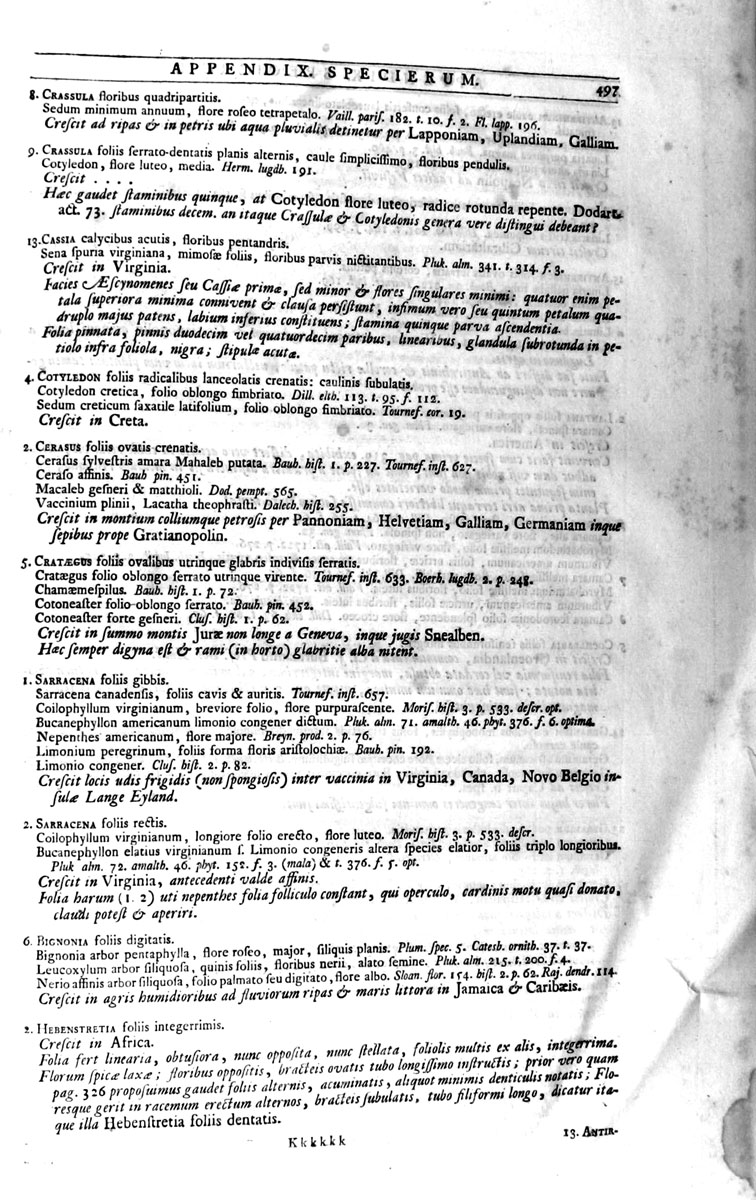 APPENDIX. SPECIERUM.
497
8. CRASSULA floribus quadripartitis.
Sedum minimum annuum, flore roseo tetrapetalo. Vaill. paris. 182. t. 10. f. 2. Fl. lapp. 196.
Crescit ad ripas & in petris ubi aqua pluvialis detinetur per Lapponiam, Uplandiam, Galliam.
9. CRASSULA foliis serrato-dentatis planis alternis, caule simplicissimo, floribus pendulis.
Cotyledon, flore luteo, media. Herm. lugdb. 191.
Crescit . . . .
Hæc gaudet staminibus quinque, at Cotyledon flore luteo, radice rotunda repente. Dodart.
act. 73. staminibus decem. an itaque Crassulæ & Cotyledonis genera vere distingui debeant?
13. CASSIA calycibus acutis, floribus pentandris.
Sena spuria virginiana, mimosæ foliis, floribus parvis nictitantibus. Pluk. alm. 341. t. 314. f. 3.
Crescit in Virginia.
Facies Æscynomenes seu Cassiæ primæ, sed minor & flores singulares minimi: quatuor enim pe-
tala superiora minima connivent & clausa persistunt, infimum vero seu quintum petalum qua-
druplo majus patens, labium inferius constituens; stamina quinque parva ascendentia.
Folia pinnata, pinnis duodecim vel quatuordecim paribus, linearibus, glandula subrotunda in pe-
tiolo infra foliola, nigra; stipulæ acutæ.
4. COTYLEDON foliis radicalibus lanceolatis crenatis: caulinis subulatis.
Cotyledon cretica, folio oblongo fimbriato. Dill. elth. 113. t. 95. f. 112.
Sedum creticum saxatile latifolium, folio oblongo fimbriato. Tournef. cor. 19.
Crescit in Creta.
2. CERASUS foliis ovatis crenatis.
Cerasus sylvestris amara Mahaleb putata. Bauh. hist. 1. p. 227. Tournef. inst. 627.
Ceraso affinis. Bauh pin. 451.
Macaleb gesneri & matthioli. Dod. pempt. 565.
Vaccinium plinii, Lacatha theophrasti. Dalech. hist. 255.
Crescit in montium colliumque petrosis per Pannoniam, Helvetiam, Galliam, Germaniam inque
sepibus prope Gratianopolin.
5. CRATÆGUS foliis ovalibus utrinque glabris indivisis serratis.
Cratægus folio oblongo serrato utrinque virente. Tournef. inst. 633. Boerh. lugdb. 2. p. 248.
Chamæmespilus. Bauh. hist. 1. p. 72.
Cotoneaster folio oblongo serrato. Bauh. pin. 452.
Cotoneaster forte gesneri. Clus. hist. 1. p. 62.
Crescit in summo montis Juræ non longe a Geneva, inque jugis Snealben.
Hæc semper digyna est & rami (in horto) glabritie alba nitent.
1. SARRACENA foliis gibbis.
Sarracena canadensis, foliis cavis & auritis. Tournef. inst. 657.
Coilophyllum virginianum, breviore folio, flore purpurascente. Moris. hist. 3. p. 533. descr. opt.
Bucanephyllon americanum limonio congener dictum. Pluk. alm. 71. amalth. 46. phyt. 376. f. 6. optima.
Nepenthes americanum, flore majore. Breyn. prod. 2. p. 76.
Limonium peregrinum, foliis forma floris aristolochiæ. Bauh. pin. 192.
Limonio congener. Clus. hist. 2. p. 82.
Crescit locis udis frigidis (non spongiosis) inter vaccinia in Virginia, Canada, Novo Belgio in-
sulæ Lange Eyland.
2. SARRACENA foliis rectis.
Coilophyllum virginianum, longiore folio erecto, flore luteo. Moris. hist. 3. p. 533. descr.
Bucanephyllon elatius virginianum s. Limonio congeneris altera species elatior, foliis triplo longioribus.
Pluk alm. 72. amalth. 46. phyt. 152. f. 3. (mala) & t. 376. f. 5. opt.
Crescit in Virginia, antecedenti valde affinis.
Folia harum (1. 2) uti nepenthes folia folliculo constant, qui operculo, cardinis motu quasi donato,
claudi potest & aperiri.
6. BIGNONIA foliis digitatis.
Bignonia arbor pentaphylla, flore roseo, major, siliquis planis. Plum. spec. 5. Catesb. ornith. 37. t. 37.
Leucoxylum arbor siliquosa, quinis foliis, floribus nerii, alato semine. Pluk. alm. 215. t. 200. f. 4.
Nerio affinis arbor siliquosa, folio palmato seu digitato, flore albo. Sloan. flor. 154. hist. 2. p. 62. Raj. dendr. 114.
Crescit in agris humidioribus ad fluviorum ripas & maris littora in Jamaica & Caribæis.
2. HEBENSTRETIA foliis integerrimis.
Crescit in Africa.
Folia fert linearia, obtusiora, nunc opposita, nunc stellata, foliolis multis ex alis, integerrima.
Florum spicæ laxæ; floribus oppositis, bracteis ovatis tubo longissimo instructis; prior vero quam
pag. 326 proposuimus gaudet foliis alternis, acuminatis, aliquot minimis denticulis notatis; Flo-
resque gerit in racemum erectum alternos, bracteis subulatis, tubo filiformi longo, dicatur ita-
que illa Hebenstretia foliis dentatis.
Kkkkkk
13. ANTIR-